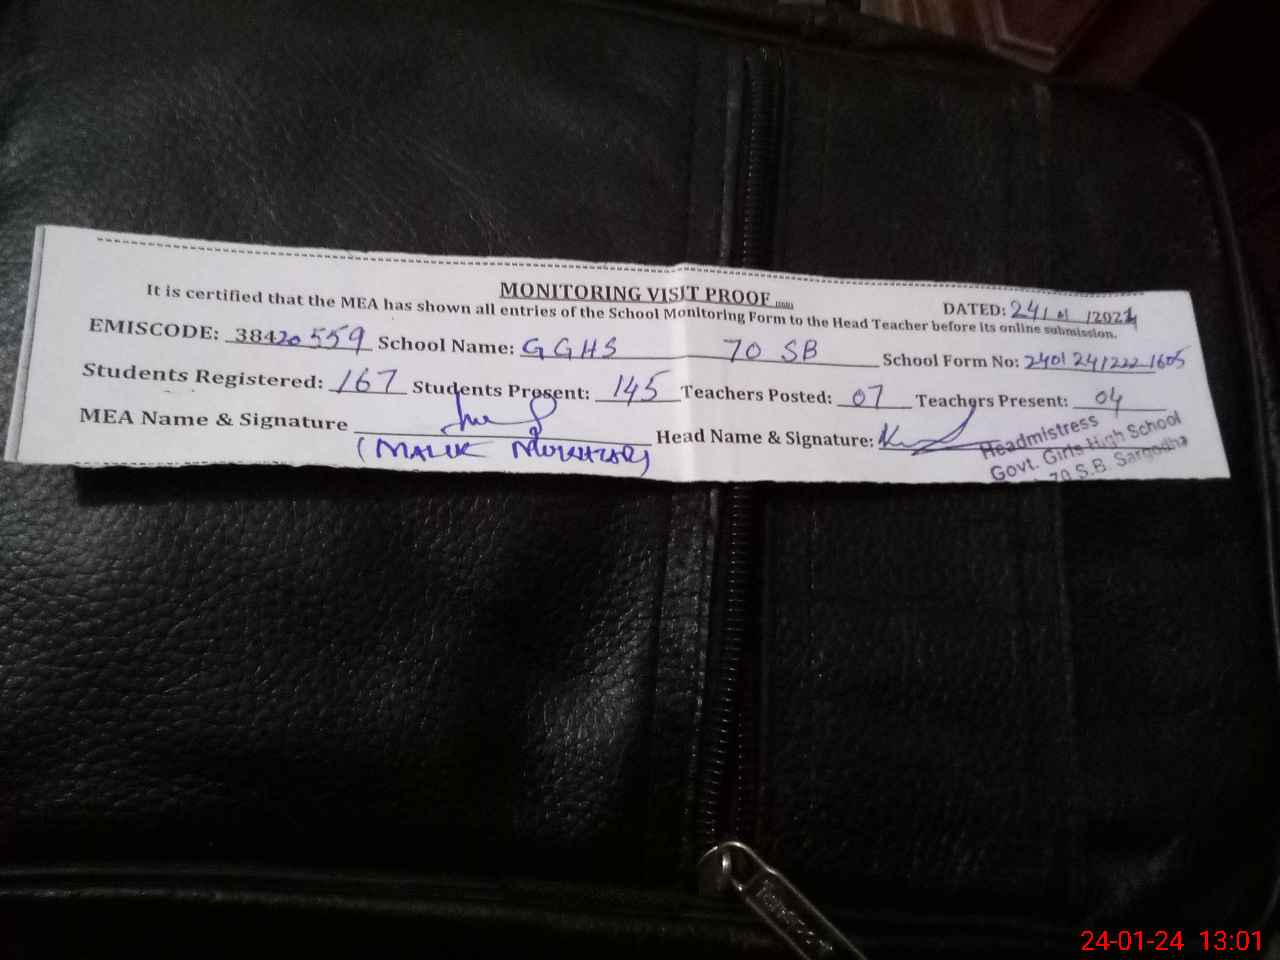 MONITORING VISIT PROOF
DATED: 24/01/2024
It is certified that the MEA has shown all entries of the School Monitoring Form to the Head Teacher before its online submission.
EMISCODE: 38420559 School Name: GGHS 70 SB School Form No: 24012412221605
Students Registered: 167 Students Present: 145 Teachers Posted: 07 Teachers Present: 04
MEA Name & Signature Head Name & Signature:
(MALIK MUKHTAR)
Headmistress
Govt. Girls High School
70 S.B. Sargodha
24-01-24 13:01